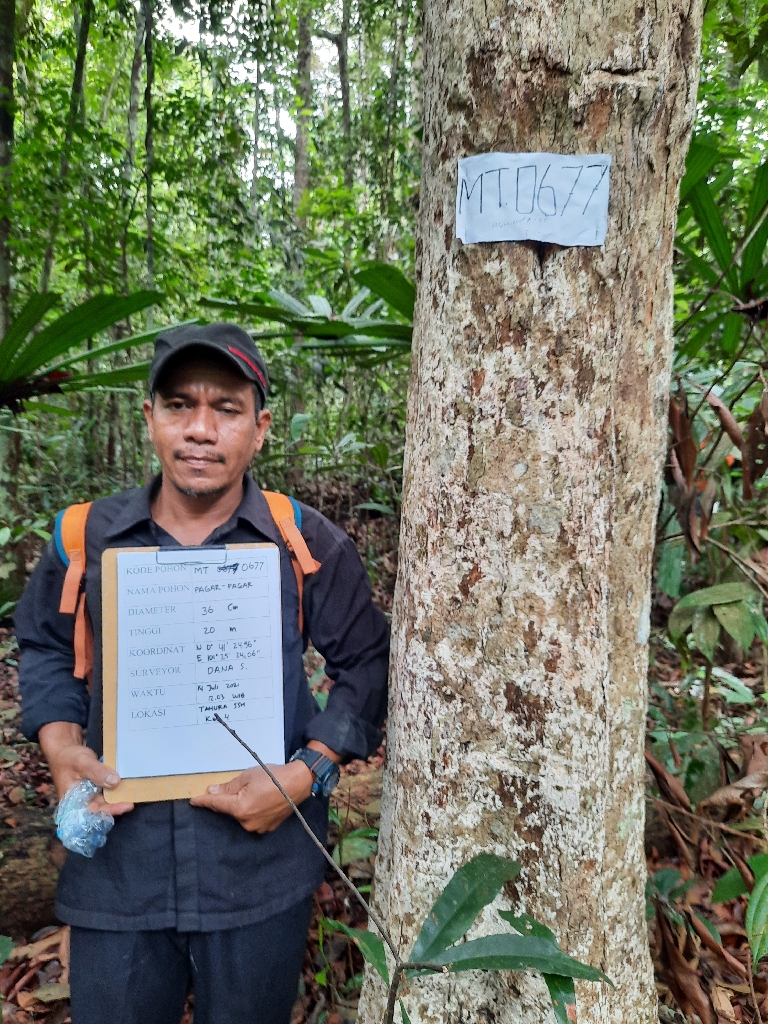 MT.0677
KODE POHON MT 0677
NAMA POHON PAGAR-PAGAR
DIAMETER 36 Cm
TINGGI 20 m
KOORDINAT N 0° 41' 24.96"
E 101° 25' 24.06"
SURVEYOR DANA S.
WAKTU 14 Juli 2021
12.03 WIB
LOKASI TAHURA SSH